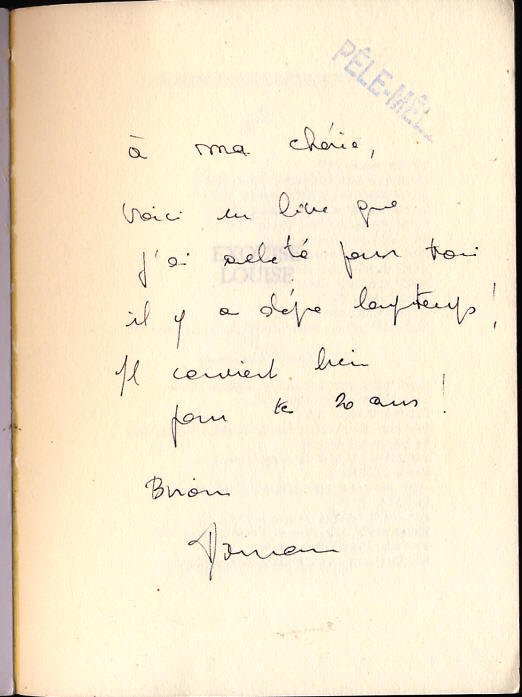 PÊLE-MÊL
à ma chérie,
voici un livre que
j'ai acheté pour toi
EXQUISE
LOUISE
il y a déjà longtemps !
Il convient bien
pour te 20 ans !
Maman